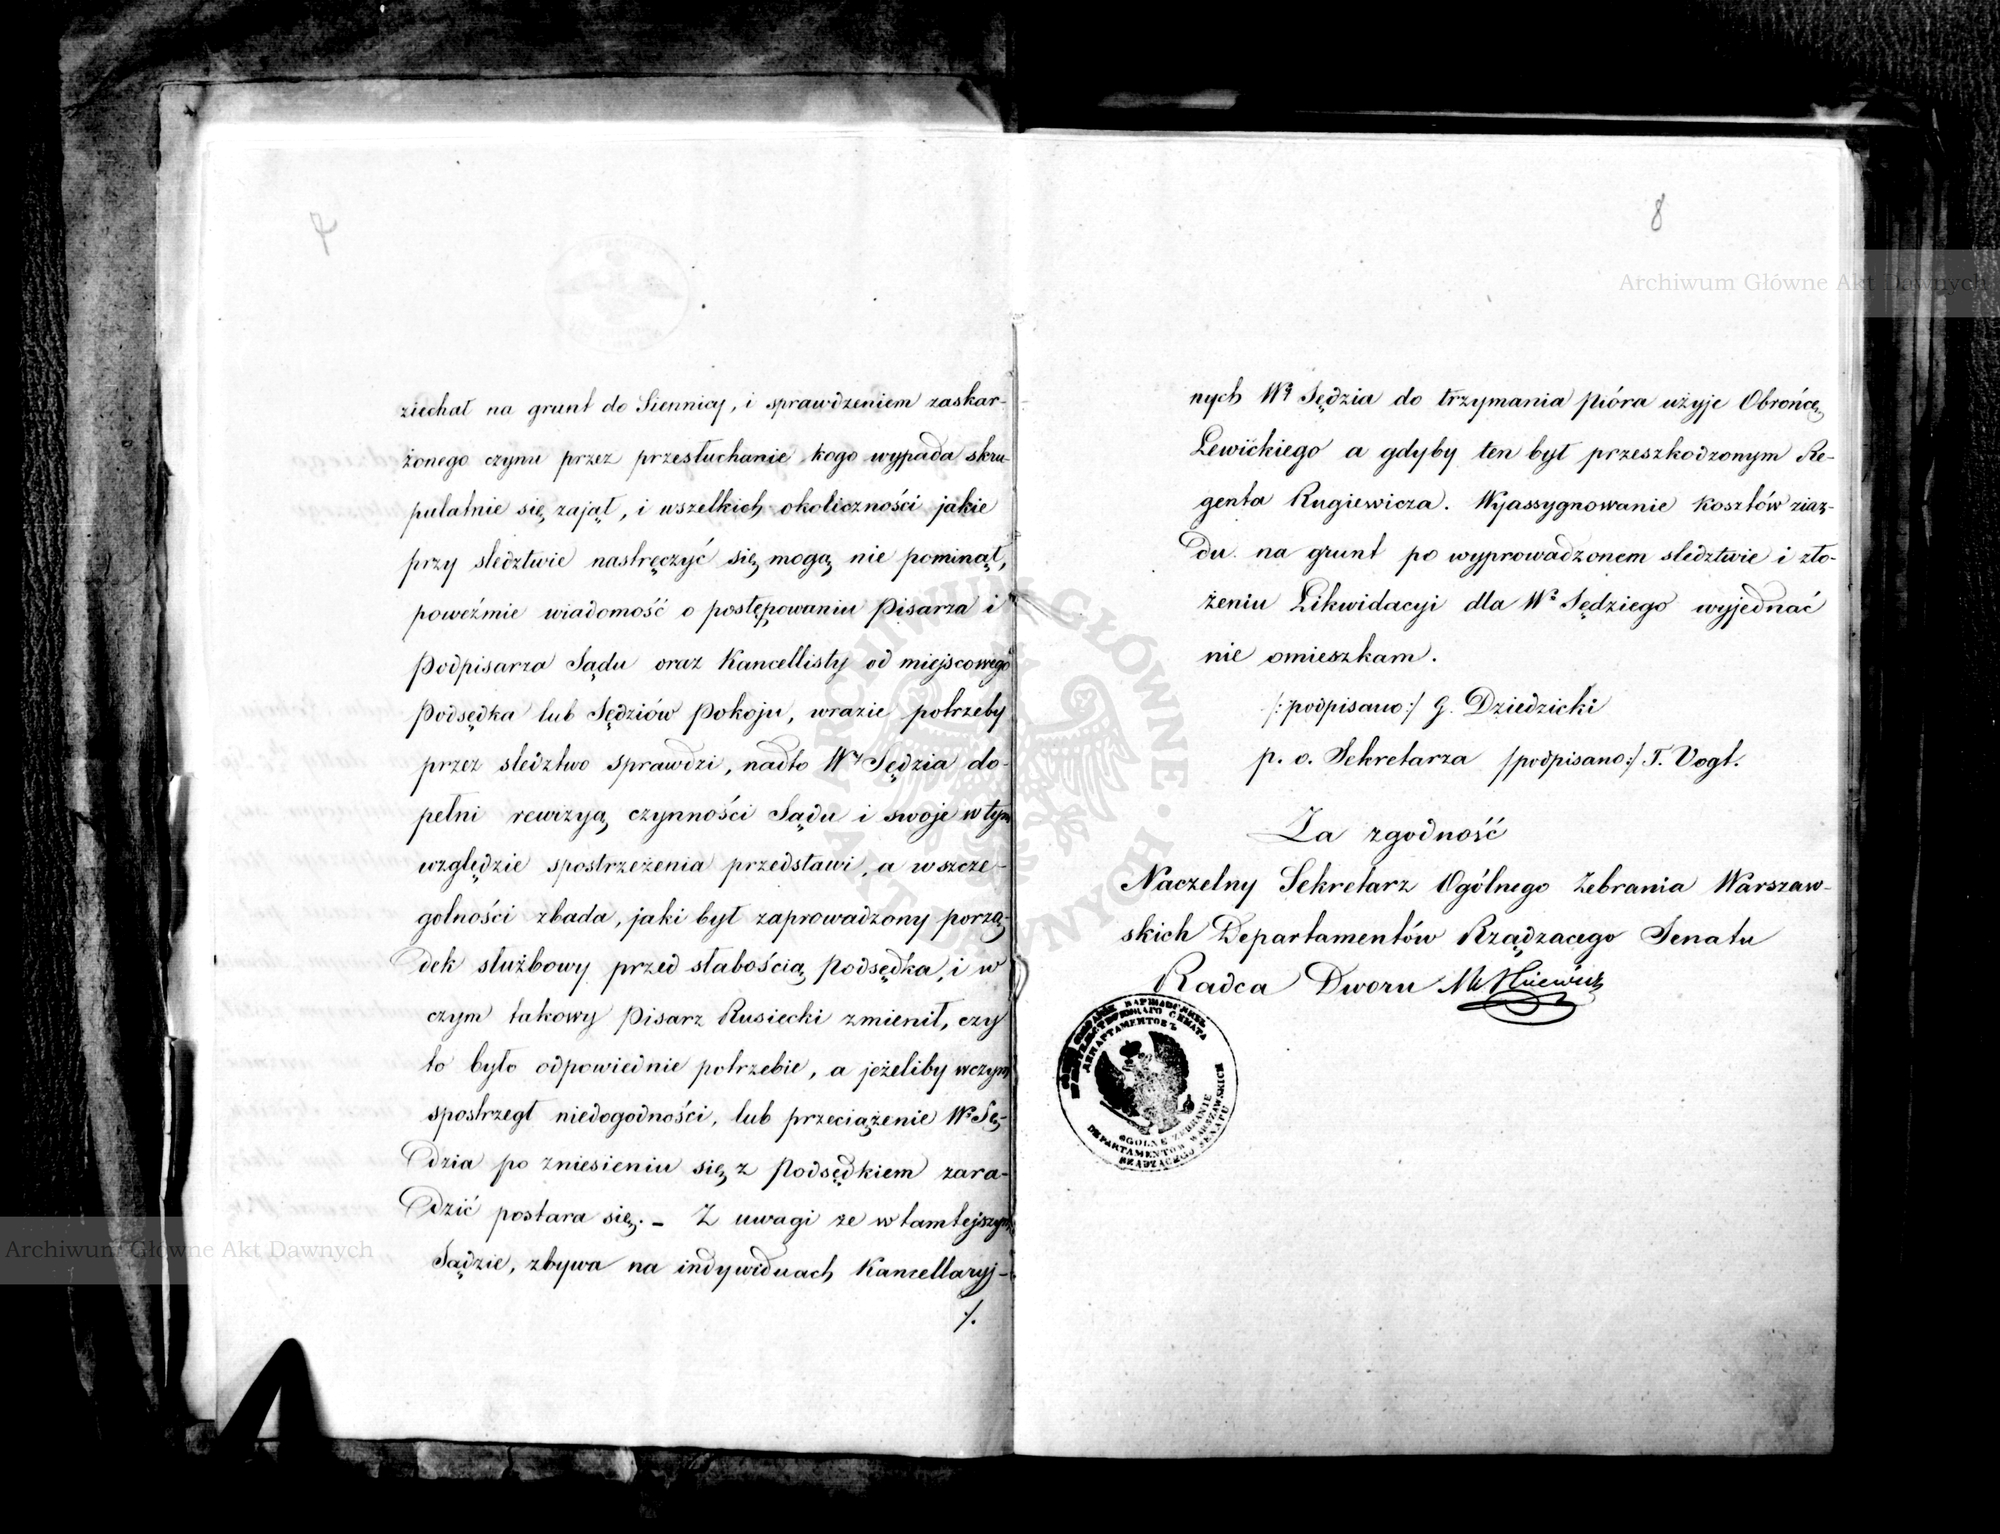 7
ziechał na grunt do Siennicy, i sprawdzeniem zaskar-
żonego czynu przez przesłuchanie kogo wypada skru-
pulatnie się zajął, i wszelkich okoliczności jakie
przy sledztwie nastręczyć się mogą nie pominął,
poweźmie wiadomość o postępowaniu Pisarza i
Podpisarza Sądu oraz Kancellisty od miejscowego
Podsędka lub Sędziów Pokoju, wrazie potrzeby
przez sledztwo sprawdzi, nadto Wy Sędzia do-
pełni rewizyą czynności Sądu i swoje w tym
względzie spostrzeżenia przedstawi, a w szcze-
golności zbada, jaki był zaprowadzony porzą-
dek służbowy przed słabością Podsędka, i w
czym takowy Pisarz Rusiecki zmienił, czy
to było odpowiednie potrzebie, a jeżeliby w czym
spostrzegł niedogodności, lub przeciążenie Wy Sę-
dzia po zniesieniu się z Podsędkiem zara-
dzić postara się. – Z uwagi ze w tamtejszym
Sądzie, zbywa na indywiduach Kancellaryj-
./.
8
nych Wy Sędzia do trzymania pióra użyje Obrońcę
Lewickiego a gdyby ten był przeszkodzonym Re-
genta Rugiewicza. Wyassygnowanie kosztów ziaz-
du na grunt po wyprowadzonem sledztwie i zło-
żeniu Likwidacyi dla Wo Sędziego wyjednać
nie omieszkam.
/: podpisano :/ G. Dziedzicki
p. o. Sekretarza /podpisano:/ T. Vogt.
Za zgodność
Naczelny Sekretarz Ogólnego Zebrania Warszaw-
skich Departamentów Rządzacego Senatu
Radca Dworu
ОБЩЕЕ СОБРАНІЕ ВАРШАВСКИХЪ
ПРАВИТЕЛЬСТВУЮЩАГО СЕНАТА
ДЕПАРТАМЕНТОВЪ
OGÓLNE ZEBRANIE
DEPARTAMENTÓW WARSZAWSKICH
RZĄDZĄCEGO SENATU
Archiwum Główne Akt Dawnych
Archiwum Główne Akt Dawnych
ARCHIWUM GŁÓWNE AKT DAWNYCH